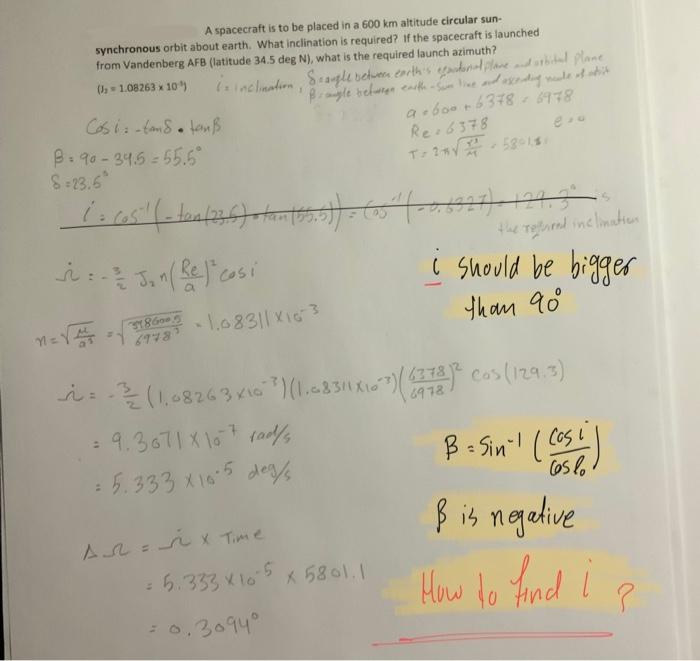 A spacecraft is to be placed in a 600 km altitude circular sun-
synchronous orbit about earth. What inclination is required? If the spacecraft is launched
from Vandenberg AFB (latitude 34.5 deg N), what is the required launch azimuth?
(J₂ = 1.08263 x 10⁻³) i = inclination, δ = angle between earth's equatorial plane and orbital plane
β = angle between earth-sun line and ascending node of orbit
a = 600 + 6378 = 6978
Cos i = -tanδ • tanβ
Re = 6378 e = 0
β = 90 - 34.5 = 55.5°
T = 2π√ = 5801.1
δ = 23.5°
i = cos⁻¹(-tan(23.5) • tan(55.5)) = Cos⁻¹(-0.6327) = 129.3° is
the required inclination
i = -3/2 J₂ n (Re/a)² cos i
i should be bigger
than 90°
n = √μ/a³ = √398600.5/6978³ = 1.08311 x 10⁻³
i = -3/2 (1.08263 x 10⁻³)(1.08311 x 10⁻³)(6378/6978)² cos(129.3)
= 9.3071 x 10⁻⁷ rad/s
β = Sin⁻¹ (Cos i/Cos l₀)
= 5.333 x 10⁻⁵ deg/s
β is negative
ΔΩ = i x Time
= 5.333 x 10⁻⁵ x 5801.1
How to find i ?
= 0.3094°